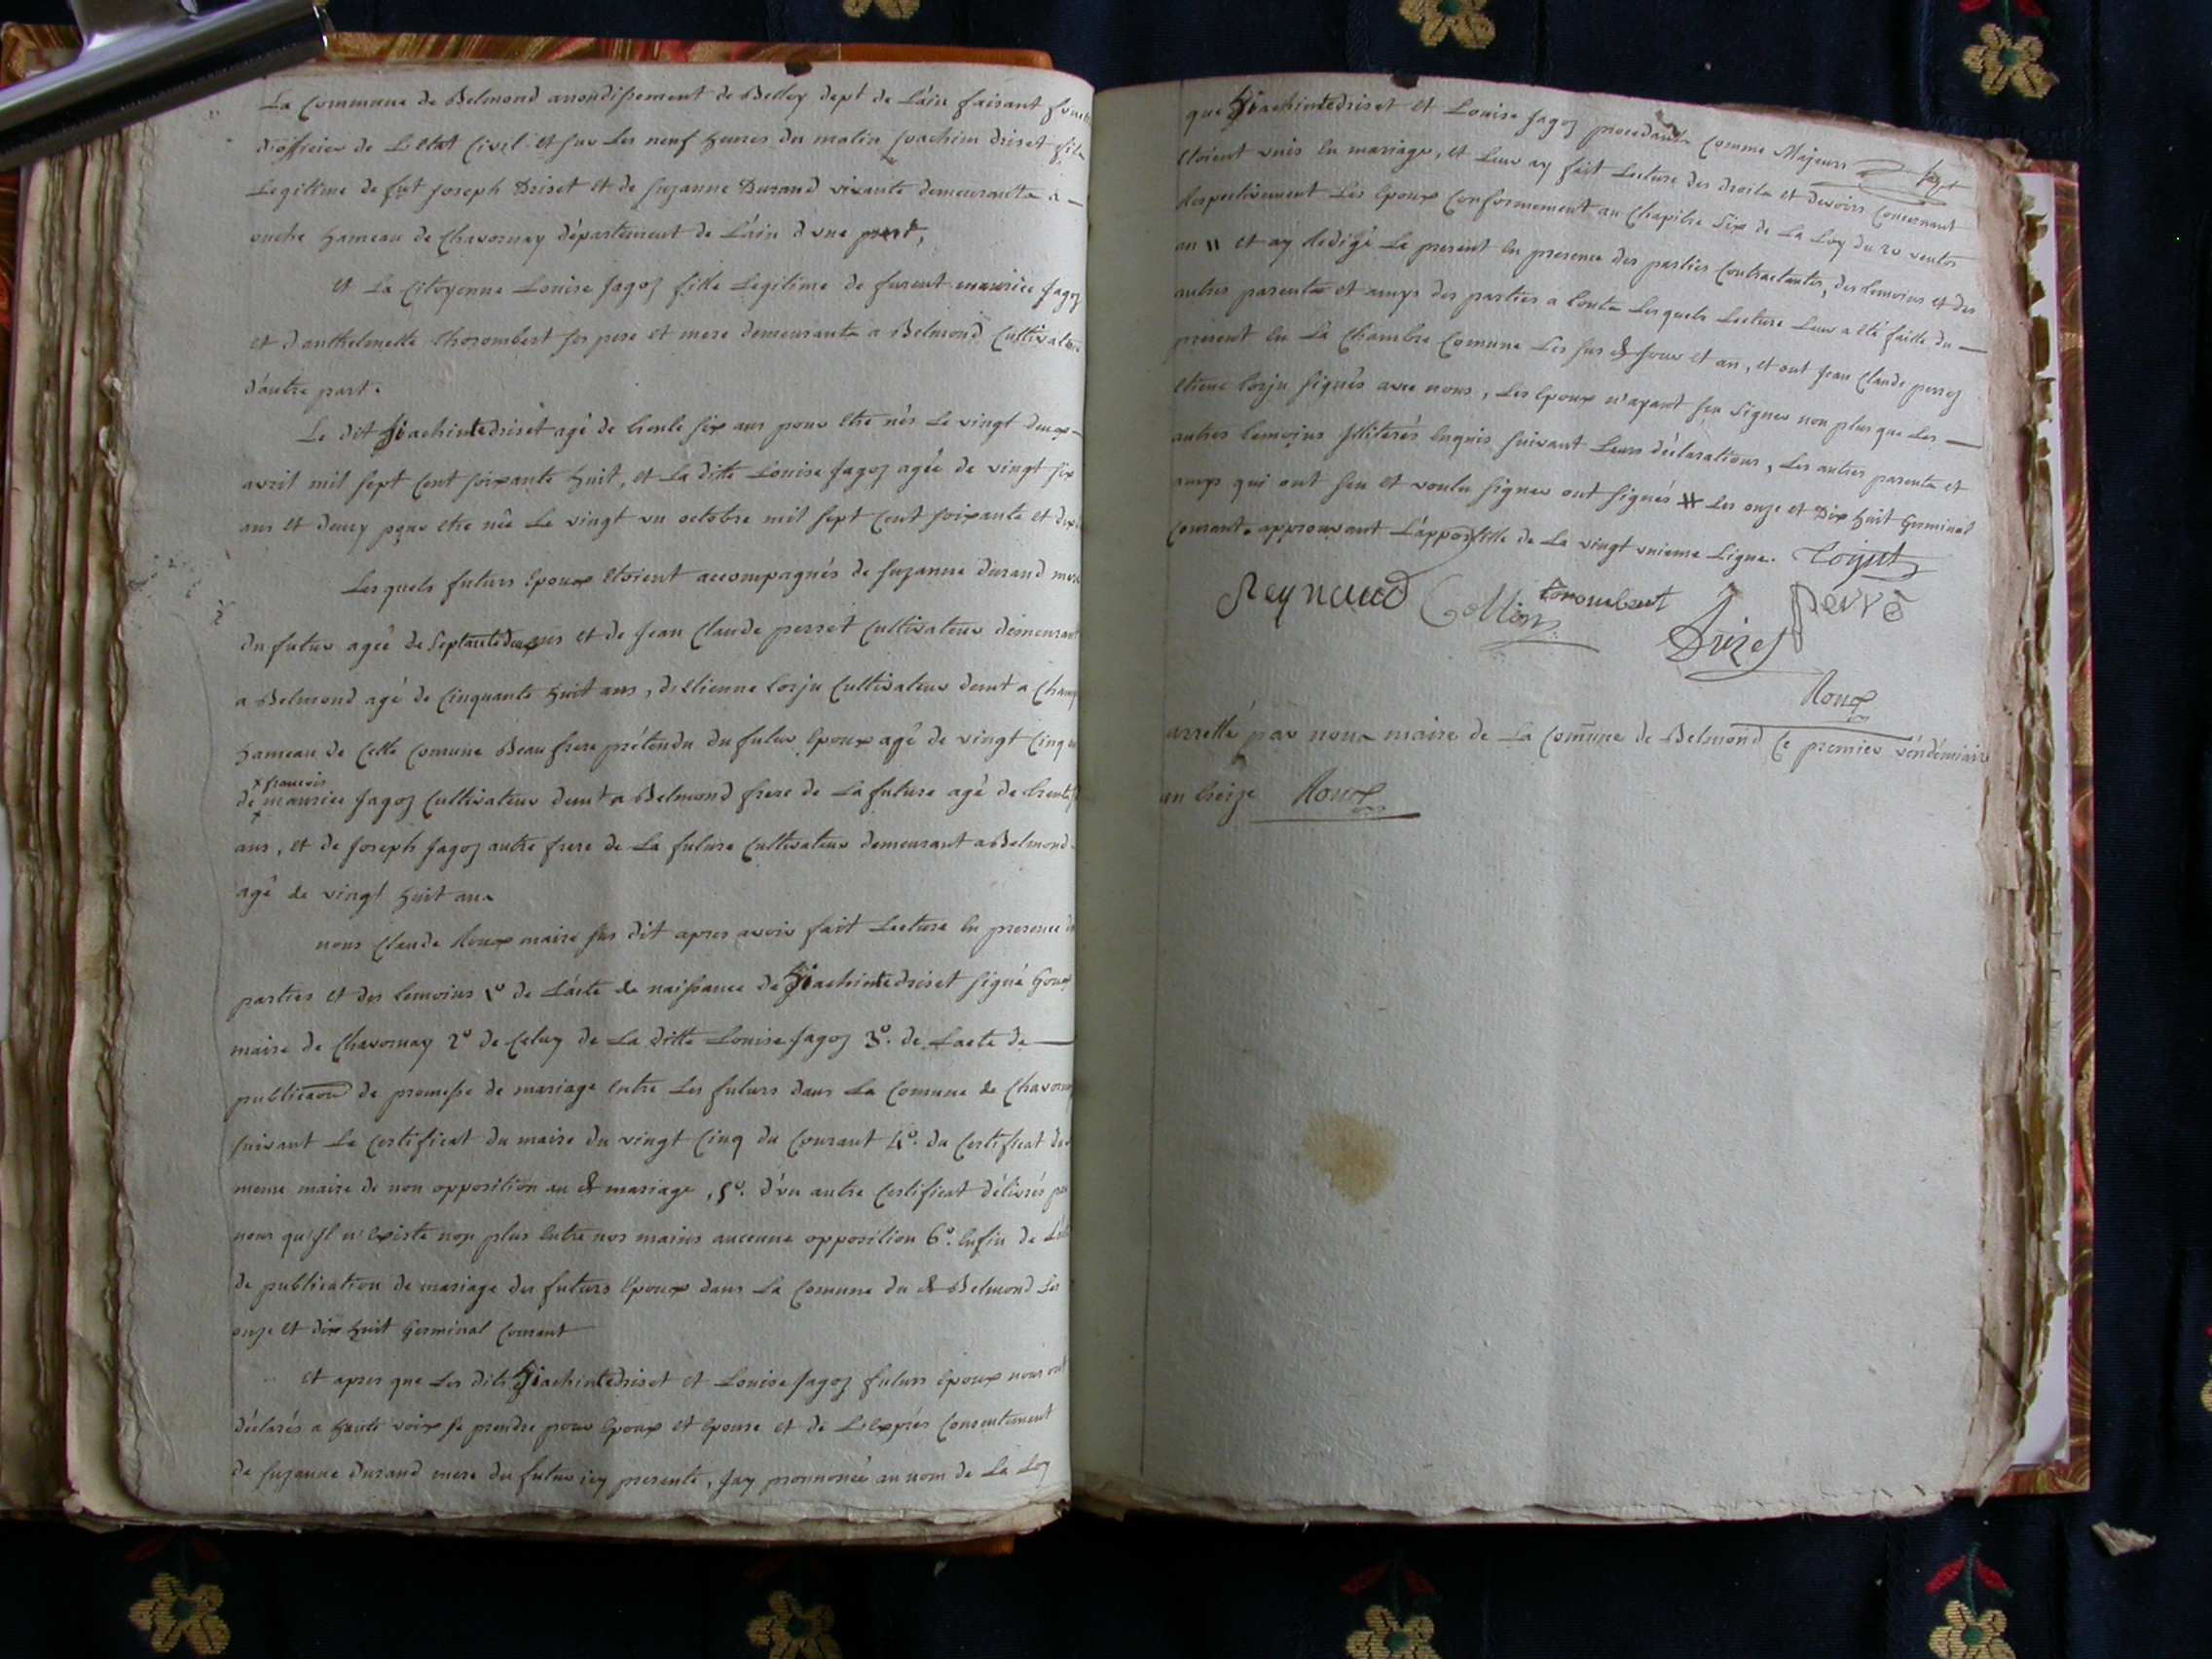 La Commune de Belmond arrondissement de Belley dept de L'ain faisant
d'officier de L'Etat Civil et sur Les neuf heures du matin Joachim driset fils
Legitime de fut Joseph Driset et de Suzanne Durand vivante demeurants a
ouche hameau de Chavornay département de L'ain d'une part,
et La Citoyenne Louise Jagoz fille Legitime de furent maurice Jagoz
et d'anthelmette thorombert ses pere et mere demeurants a Belmond Cultivateurs
d'autre part.
Le dit hiachinte driset agé de trente six ans pour etre nés Le vingt deux
avril mil sept Cent soixante huit, et La ditte Louise Jagoz agée de vingt six
ans et demy pour etre née Le vingt un octobre mil sept Cent soixante et dix
Les quels futurs Epoux Etoient accompagnés de Suzanne durand mere
du futur agée de Septante deux ans et de Jean Claude perret Cultivateur demeurant
a Belmond agé de Cinquante huit ans, d'Etienne Corju Cultivateur demt a
hameau de Cette Comune Beau frere prétendu du futur Epoux agé de vingt Cinq
x francois
de maurice Jagoz Cultivateur demt a Belmond frere de La future agé de trente
ans, et de Joseph Jagoz autre frere de La future Cultivateur demeurant a Belmond
agé de vingt huit ans
nous Claude Roux maire sus dit apres avoir fait Lecture en presence des
parties et des temoins 1º de L'acte de naissance de hiachinte driset signé Goux
maire de Chavornay 2º de Celuy de La ditte Louise Jagoz 3º. de Lacte de
publicaon de promesse de mariage entre Les futurs dans La Comune de Chavornay
suivant Le Certificat du maire du vingt Cinq du Courant 4º. du Certificat du
meme maire de non opposition au dt mariage, 5º. d'un autre Certificat délivrés par
nous qu'Jl n'Existe non plus Entre nos mains aucunne opposition 6º. Enfin de
de publication de mariage des futurs Epoux dans La Comune du dt Belmond Les
onze et dix huit Germinal Courant
et apres que Les dits hiachinte driset et Louise Jagoz futurs Epoux nous ont
déclarés a haute voix se prendre pour Epoux et Epouse et de L'Exprès Consentement
de Suzanne durand mere du futur icy presente, Jay pronnoncé au nom de La Loy
que hiachinte driset et Louise Jagoz procedants Comme Majeurs
Etoient unis En mariage, et Leur ay fait Lecture des droits et devoirs Concernant
Respectivement Les Epoux Conformement au Chapitre Six de La Loy du 20 ventos
an 11 et ay Redigé Le present En presence des parties Contractantes, des temoins et des
autres parents et amys des parties a toutes Lesquels Lecture Leur a Eté faitte du
present En La Chambre Comune Les sus dt Jour et an, et ont Jean Claude perret
Etiene Corju signés avec nous, Les Epoux n'ayant seu signer non plus que Les
autres temoins Jlliterés Enquis suivant Leurs déclarations, Les autres parents et
amys qui ont seu et voulu signer ont signés # Les onze et Dix huit Germinal
Courant. approuvant L'appostille de La vingt unieme Ligne.
Reynaud Collion torombert Drizet perré
Roux
arretté par nous maire de La Comune de Belmond Ce premier vendémiaire
an treize Roux